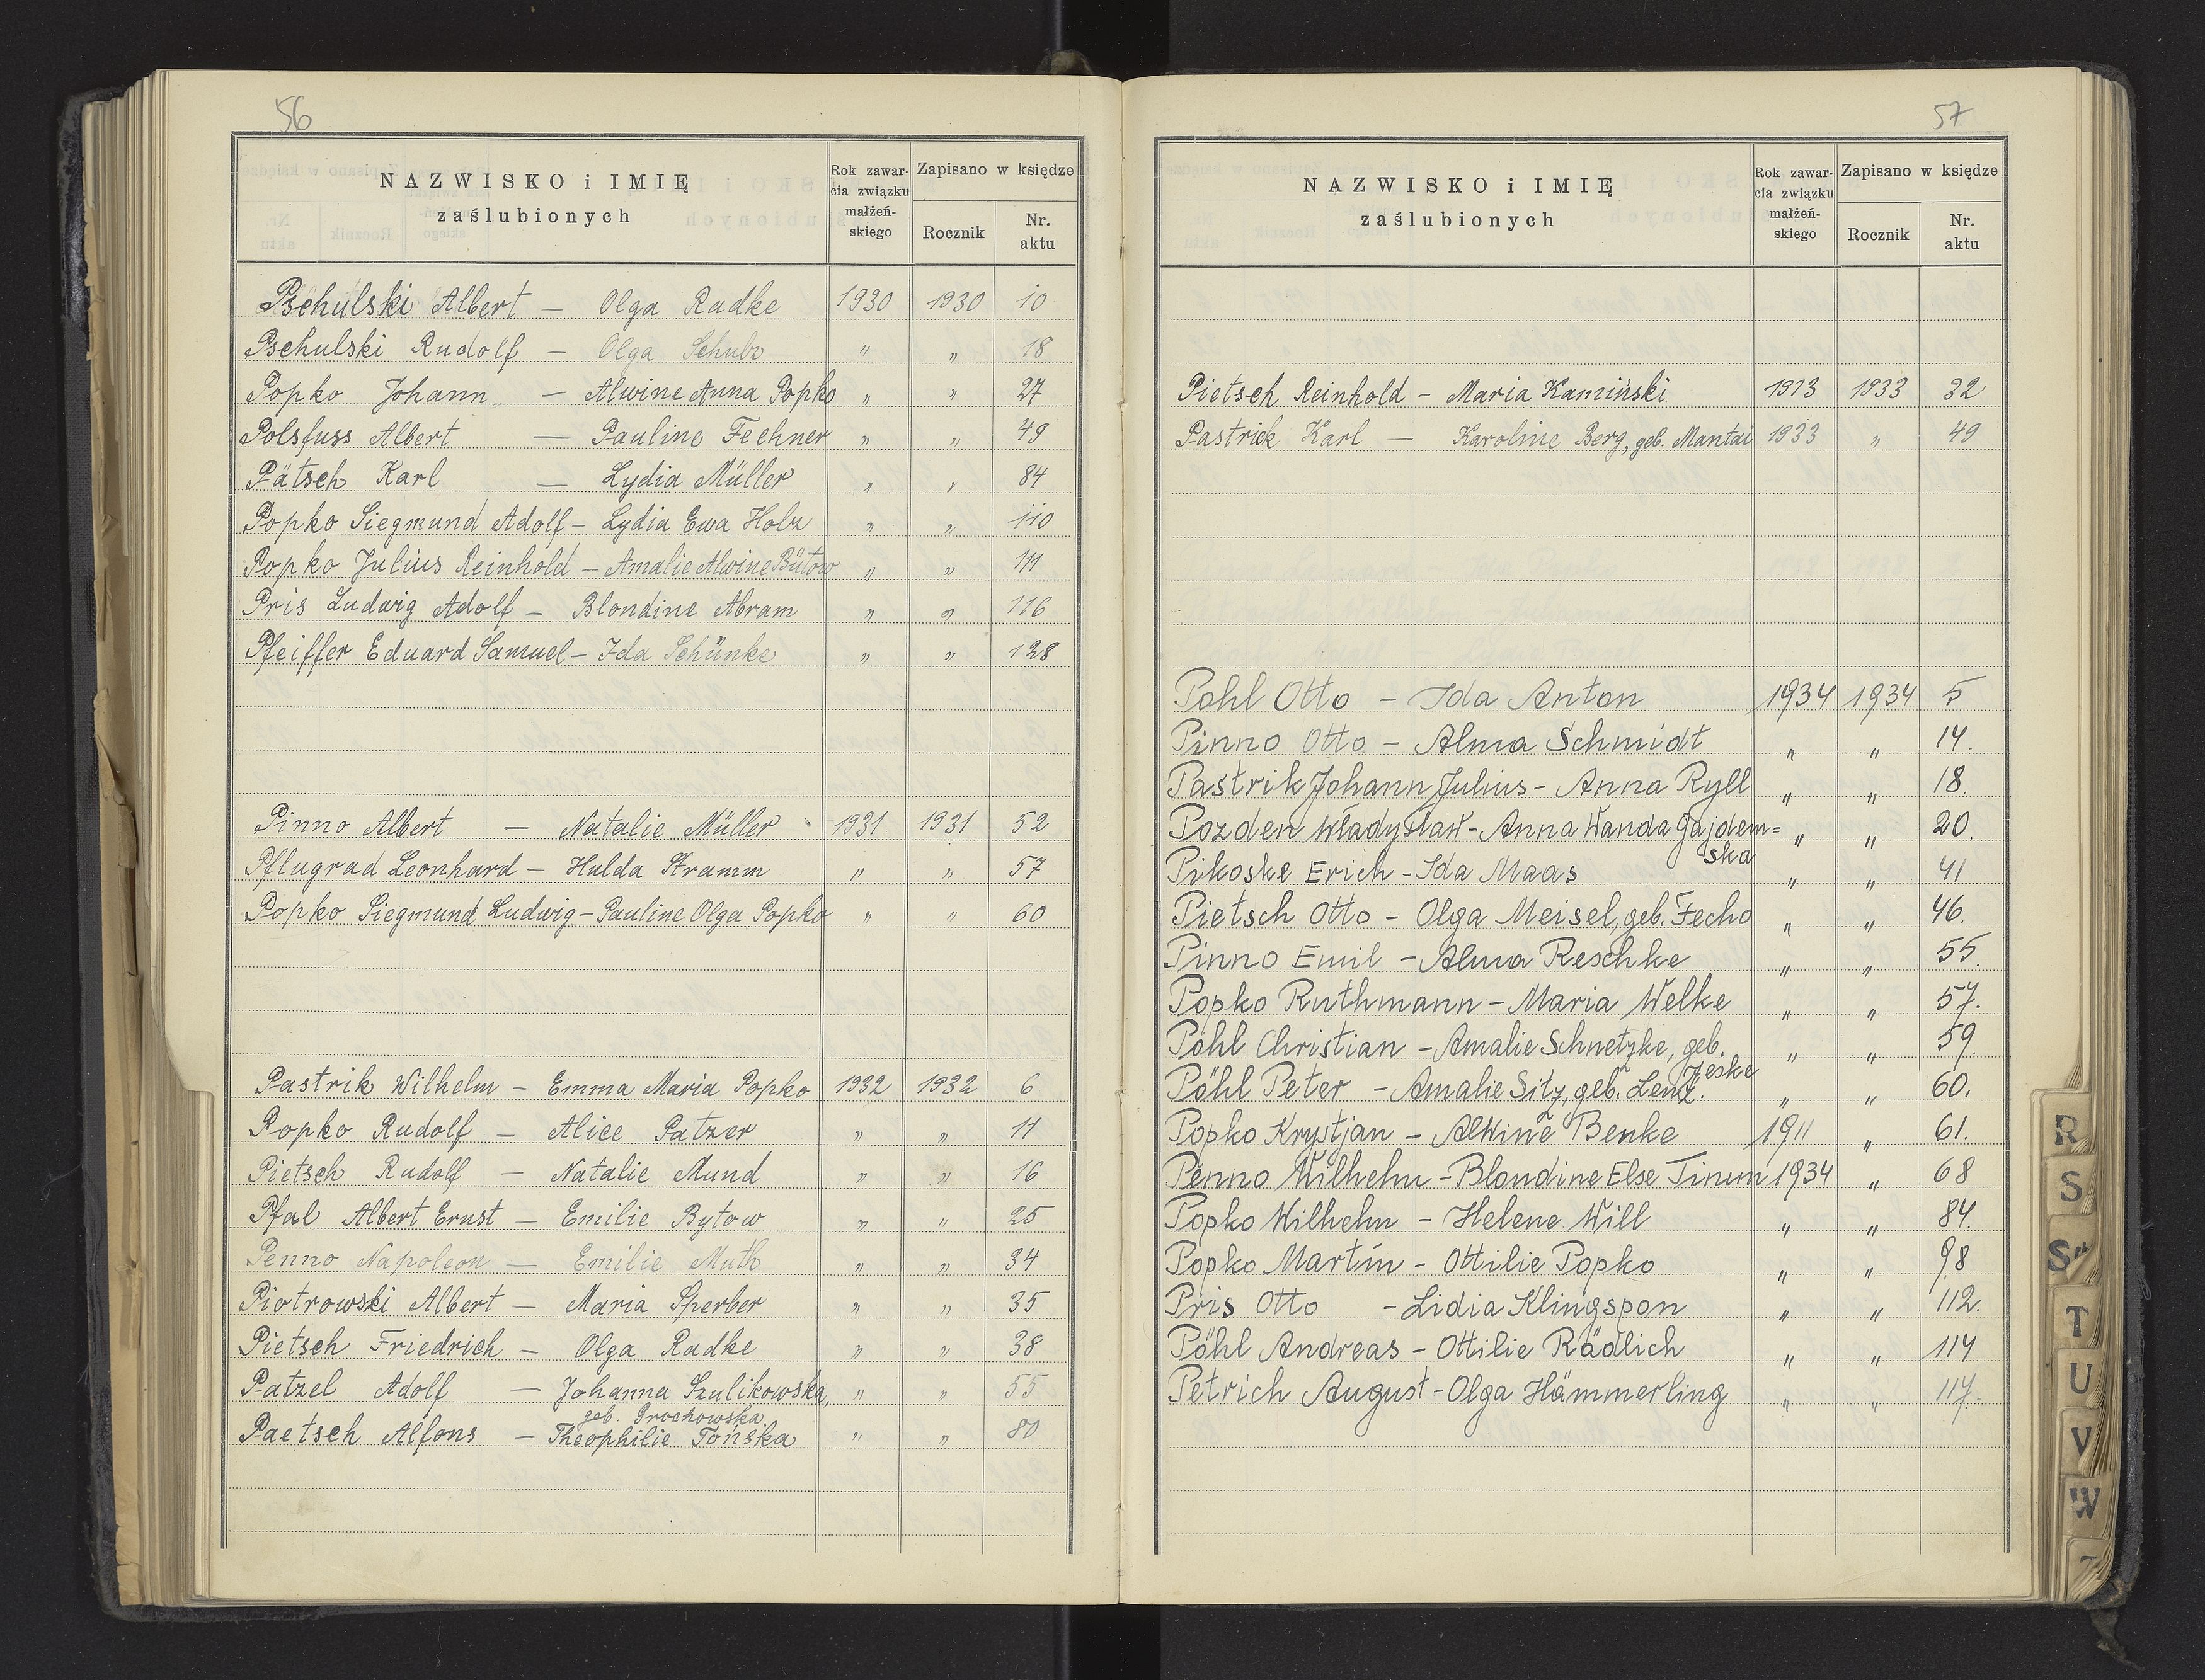 56
NAZWISKO i IMIĘ
zaślubionych
Rok zawar-
cia związku
małżeń-
skiego
Zapisano w księdze
Rocznik
Nr.
aktu
Pschulski Albert — Olga Radke 1930 1930 10
Pschulski Rudolf — Olga Schulz " " 18
Popko Johann — Alwine Anna Popko " " 27
Polsfuss Albert — Pauline Fechner " " 49
Pätsch Karl — Lydia Müller " " 84
Popko Siegmund Adolf — Lydia Ewa Holz " " 110
Popko Julius Reinhold — Amalie Alwine Bütow " " 111
Pris Ludwig Adolf — Blondine Abram " " 116
Pfeiffer Eduard Samuel — Ida Schünke " " 128
Pinno Albert — Natalie Müller 1931 1931 52
Pflugrad Leonhard — Hulda Stramm " " 57
Popko Siegmund Ludwig — Pauline Olga Popko " " 60
Pastrik Wilhelm — Emma Maria Popko 1932 1932 6
Popko Rudolf — Alice Patzer " " 11
Pietsch Rudolf — Natalie Mund " " 16
Pfal Albert Ernst — Emilie Bytow " " 25
Penno Napoleon — Emilie Muth " " 34
Piotrowski Albert — Maria Sperber " " 35
Pietsch Friedrich — Olga Radke " " 38
Patzel Adolf — Johanna Szulikowska, " " 55
geb. Grochowska
Paetsch Alfons — Theophilie Tońska " " 80
57
NAZWISKO i IMIĘ
zaślubionych
Rok zawar-
cia związku
małżeń-
skiego
Zapisano w księdze
Rocznik
Nr.
aktu
Pietsch Reinhold — Maria Kamiński 1913 1933 32
Pastrick Karl — Karoline Berg, geb. Mantai 1933 " 49
Pohl Otto — Ida Anton 1934 1934 5
Pinno Otto — Alma Schmidt " " 14.
Pastrik Johann Julius — Anna Ryll " " 18.
Pozden Władysław — Anna Wanda Gajdem= " " 20.
ska
Pikoske Erich — Ida Maas " " 41
Pietsch Otto — Olga Meisel, geb. Fecho " " 46.
Pinno Emil — Alma Reschke " " 55.
Popko Ruthmann — Maria Welke " " 57.
Pöhl Christian — Amalie Schnetzke, geb. " " 59.
Jeske
Pöhl Peter — Amalie Sitz, geb. Lenz. " " 60.
Popko Krystjan — Alwine Benke 1911 " 61.
Penno Wilhelm — Blondine Else Timm 1934 " 68
Popko Wilhelm — Helene Will " " 84.
Popko Martin — Ottilie Popko " " 98
Pris Otto — Lidia Klingspon " " 112.
Pöhl Andreas — Ottilie Rädlich " " 114
Petrich August — Olga Hämmerling " " 117.
R
S
S"
T
U
V
W
Z